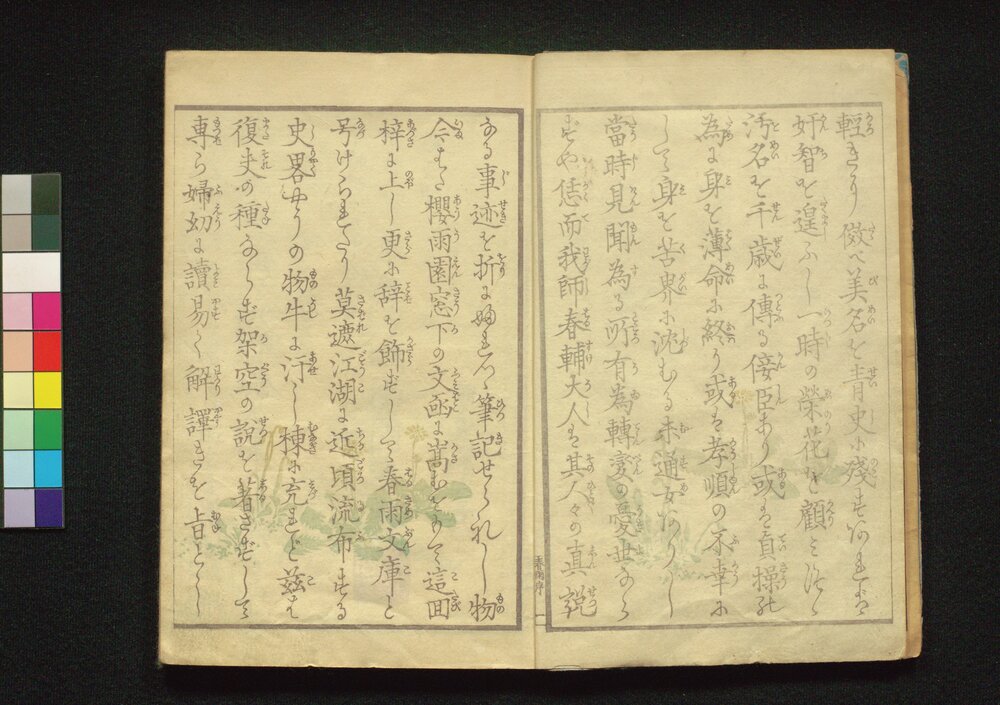 輕きあり倣て美名を青史に殘すあれば
奸智を逞ふし一時の榮花を顧みず
汚名を千歳に傳る佞臣あり或は貞操の
為に身を薄命に終り或は孝順の不幸に
して身を苦界に沈むる未通女ありし
當時見聞為る所有為轉變の憂世なら
ずや恁而我師春輔大人は其人々の真説
なる事迹を折に婦れつゝ筆記せられし物
今はた櫻雨園窓下の文函に嵩むをもて這回
梓に上し更に辞を飾ずして春雨文庫と
号けられたり莫遮江湖に近頃流布する
史畧やうの物牛に汗し棟に充れど茲は
復夫の種ならず架空の説を著さずして
専ら婦幼に讀易く解譯きを旨とし
春雨序